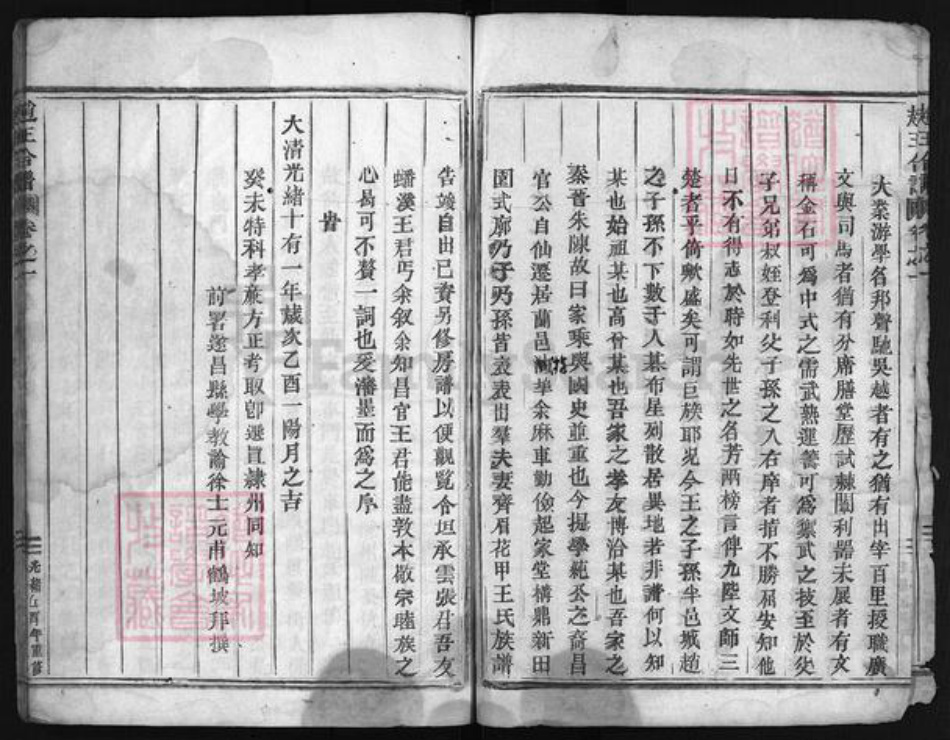 大業游學名邦聲馳吳越者有之猶有出宰百里授職廣
文與司馬者猶有分席膳堂歷試棘闈利器未展者有文
稱金石可為中式之儒武熟運籌可為禦武之技至於父
子兄弟叔姪登科父子孫之入右庠者指不勝屈安知他
日不有得志於時如先世之名芳兩榜言俾九陛文師三
楚者乎猗歟盛矣可謂巨族耶况今王之子孫半邑城趙
之子孫不下數千人棊布星列散居異地若非譜何以知
某也始祖某也高曾某也吾家之孝友博洽某也吾家之
秦晉朱陳故曰家乘與國史並重也今提學純公之裔昌
官公自仙遷居蘭邑余麻車勤儉起家堂構鼎新田
園式廓乃子乃孫皆表表出羣夫妻齊眉花甲王氏族譜
告竣自出己資另修房譜以便觀覽令坦承雲張君吾友
蟠溪王君丐余叙余知昌官王君能盡敦本敬宗睦族之
心曷可不贅一詞也爰濡墨而為之序
旹
大清光緒十有一年歲次乙酉一陽月之吉
癸未特科孝廉方正考取卽選直隸州同知
前署遂昌縣學教諭徐士元甫鶴坡拜撰
趙王合譜
卷之一
光緒乙酉年重修